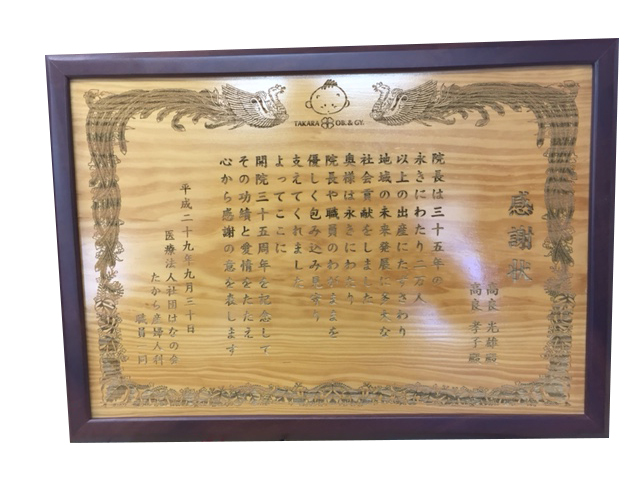 TAKARA OB.&GY.
感謝状
高良 光雄殿
高良 孝子殿
院長は三十五年の
永きにわたり二万人
以上の出産にたずさわり
地域の未来発展に多大な
社会貢献をしました
奥様は永きにわたり
院長や職員のわがままを
優しく包み込み見守り
支えてくれました
よってここに
開院三十五周年を記念して
その功績と愛情をたたえ
心から感謝の意を表します
平成二十九年九月三十日
医療法人社団はなの会
たから産婦人科
職員一同